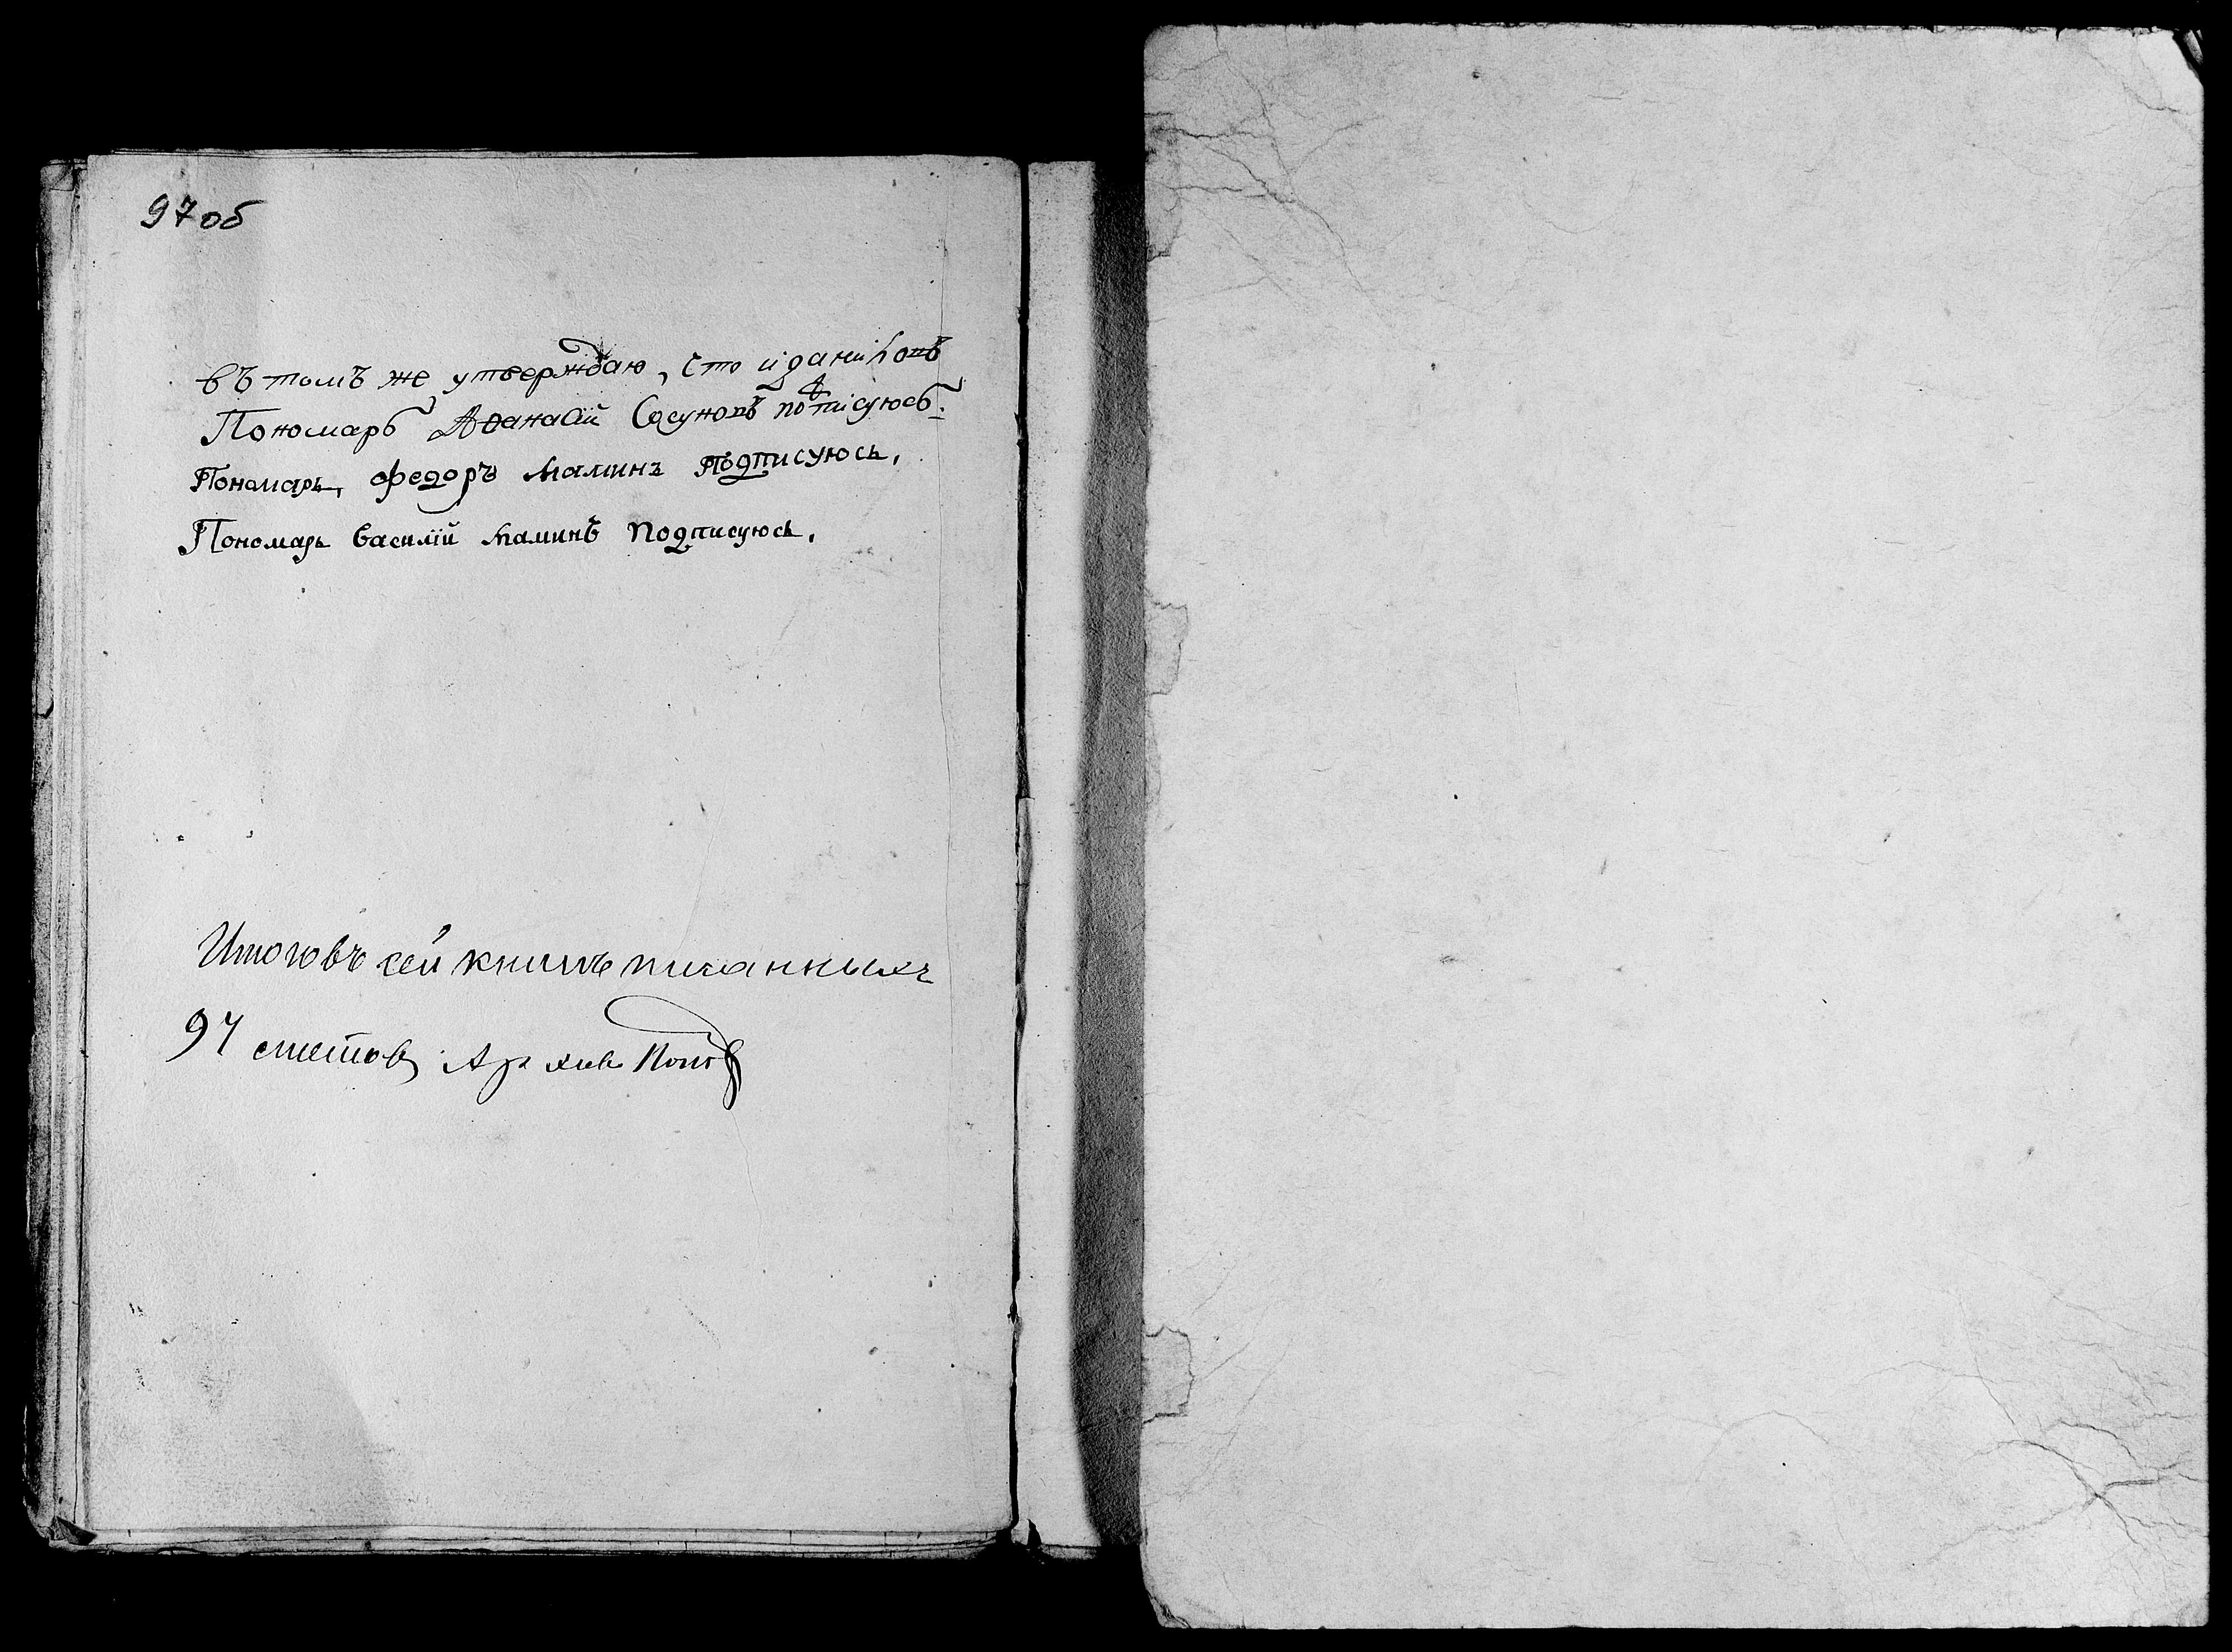 97 об
въ томъ же утверждаю, сто
Пономарь Аѳанасій Сосуновъ потписуюсь.
Пономарь, федоръ маминъ подписуюсь,
Пономарь василій маминъ подписуюсь,
Итого въ сей книге писанныхъ
97 листов Архив